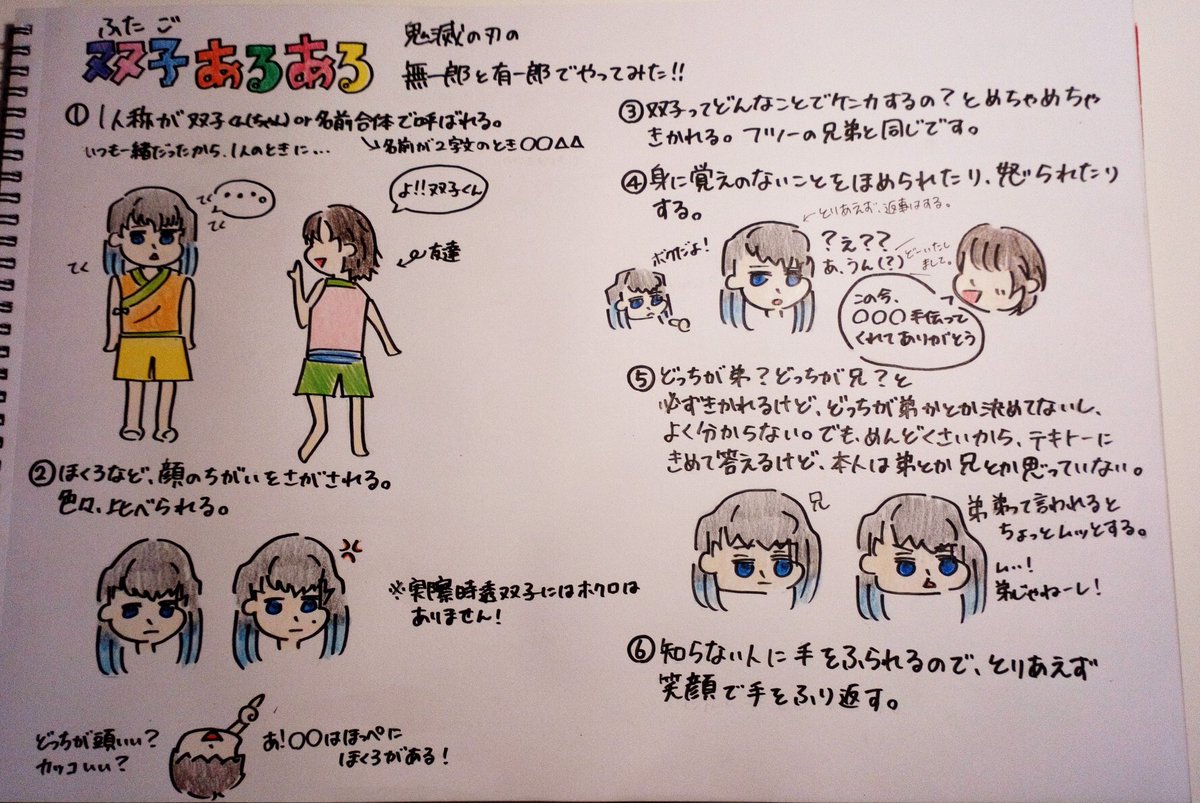 ふたご
双子あるある
鬼滅の刃の
無一郎と有一郎でやってみた!!
① 1人称が双子く(ちゃん)or名前合体で呼ばれる。
いつも一緒だったから、1人のときに…
↘名前が2字文のとき〇〇△△
・・・。
てく
てく
てく
よ!!双子くん
友達
②ほくろなど、顔のちがいをさがされる。
色々、比べられる。
※実際時透双子にはホクロは
ありません!
どっちが頭いい?
カッコいい?
あ!〇〇はほっぺに
ほくろがある!
③双子ってどんなことでケンカするの?とめちゃめちゃ
きかれる。フツーの兄弟と同じです。
④身に覚えのないことをほめられたり、怒られたり
する。
とりあえず、返事はする。
ボクだよ!
?え??
あ、うん(?)
どーいたし
まして。
この今、
〇〇〇手伝って
くれてありがとう
⑤どっちが弟?どっちが兄?と
必ずきかれるけど、どっちが弟かとか決めてないし、
よく分からない。でも、めんどくさいから、テキトーに
きめて答えるけど、本人は弟とか兄とか思っていない。
兄
弟
弟って言われると
ちょっとムッとする。
ム…!
弟じゃねーし!
⑥知らない人に手をふられるので、とりあえず
笑顔で手をふり返す。